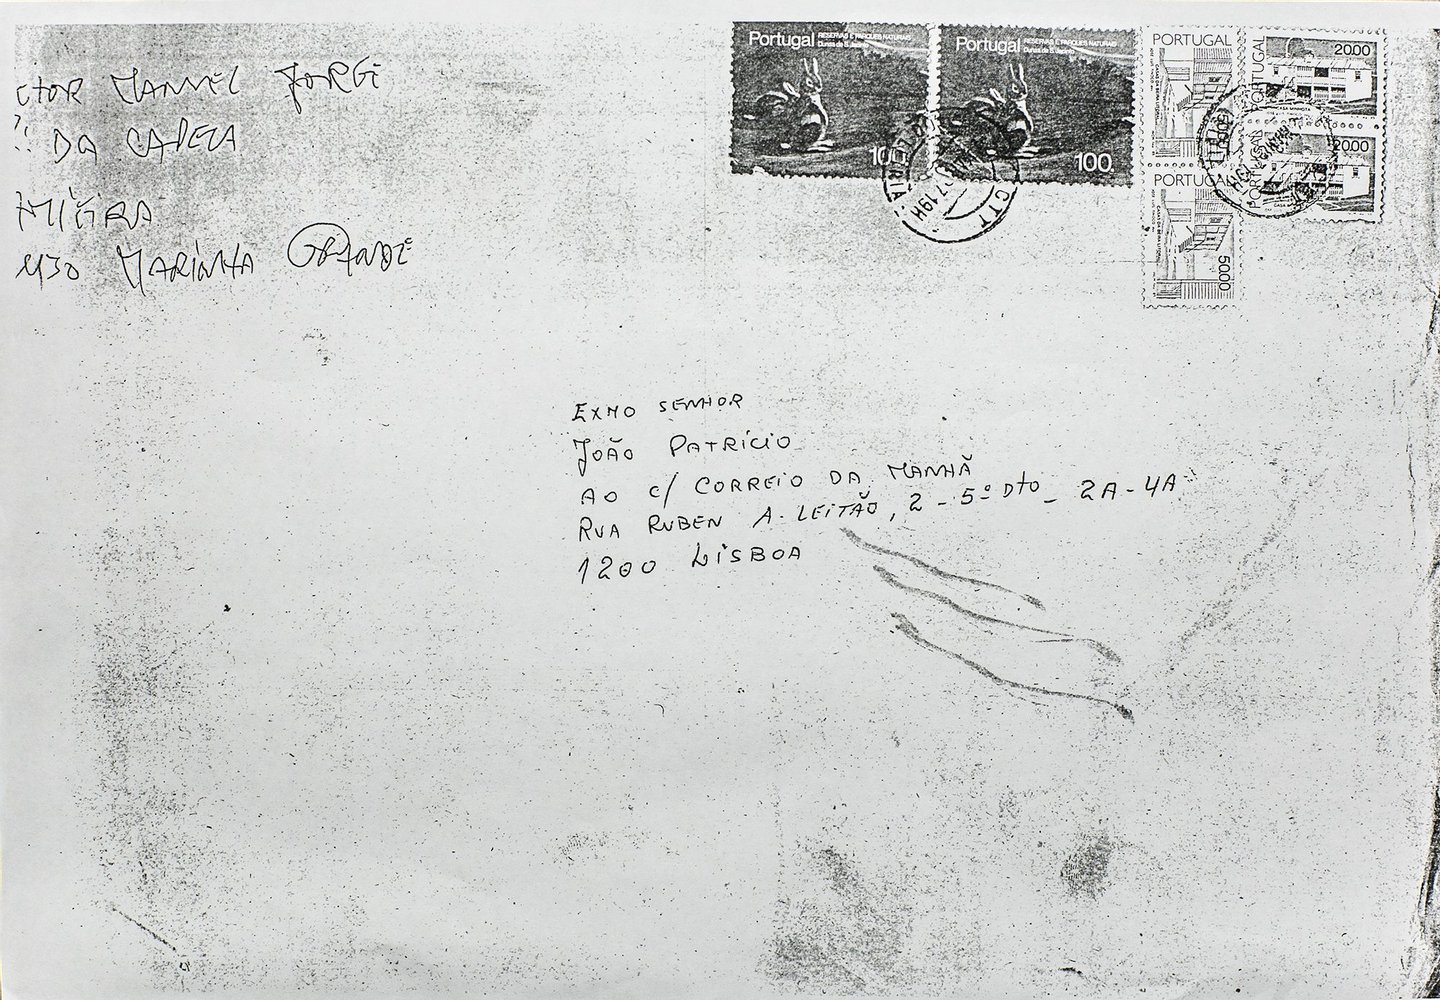 CTOR MANUEL JORGE
DA CAPELA
2430 MARINHA GRANDE
Portugal RESERVAS E PARQUES NATURAIS
Dunas de S. Jacinto
10
Portugal RESERVAS E PARQUES NATURAIS
Dunas de S. Jacinto
100.
PORTUGAL
PORTUGAL
50.00
PORTUGAL
20.00
CASA MINHOTA
PORTUGAL
20.00
LEIRIA
19H
CTT
EXMO SENHOR
JOÃO PATRÍCIO
AO C/ CORREIO DA MANHÃ
RUA RUBEN A. LEITÃO, 2 - 5º DTO - 2A - 4A
1200 LISBOA